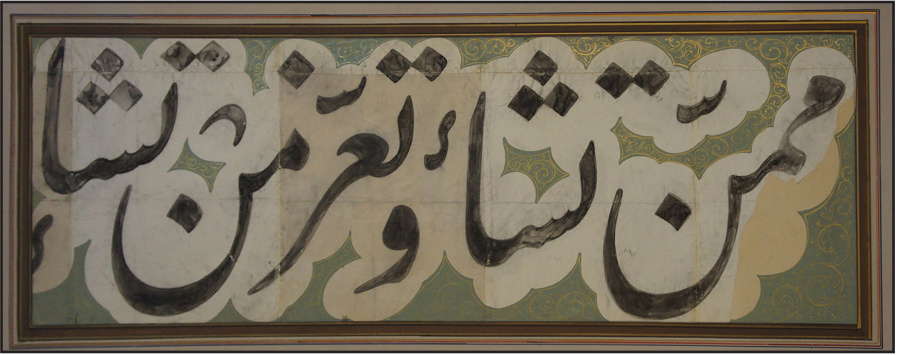 ممن تشاء وتعز من تشاء